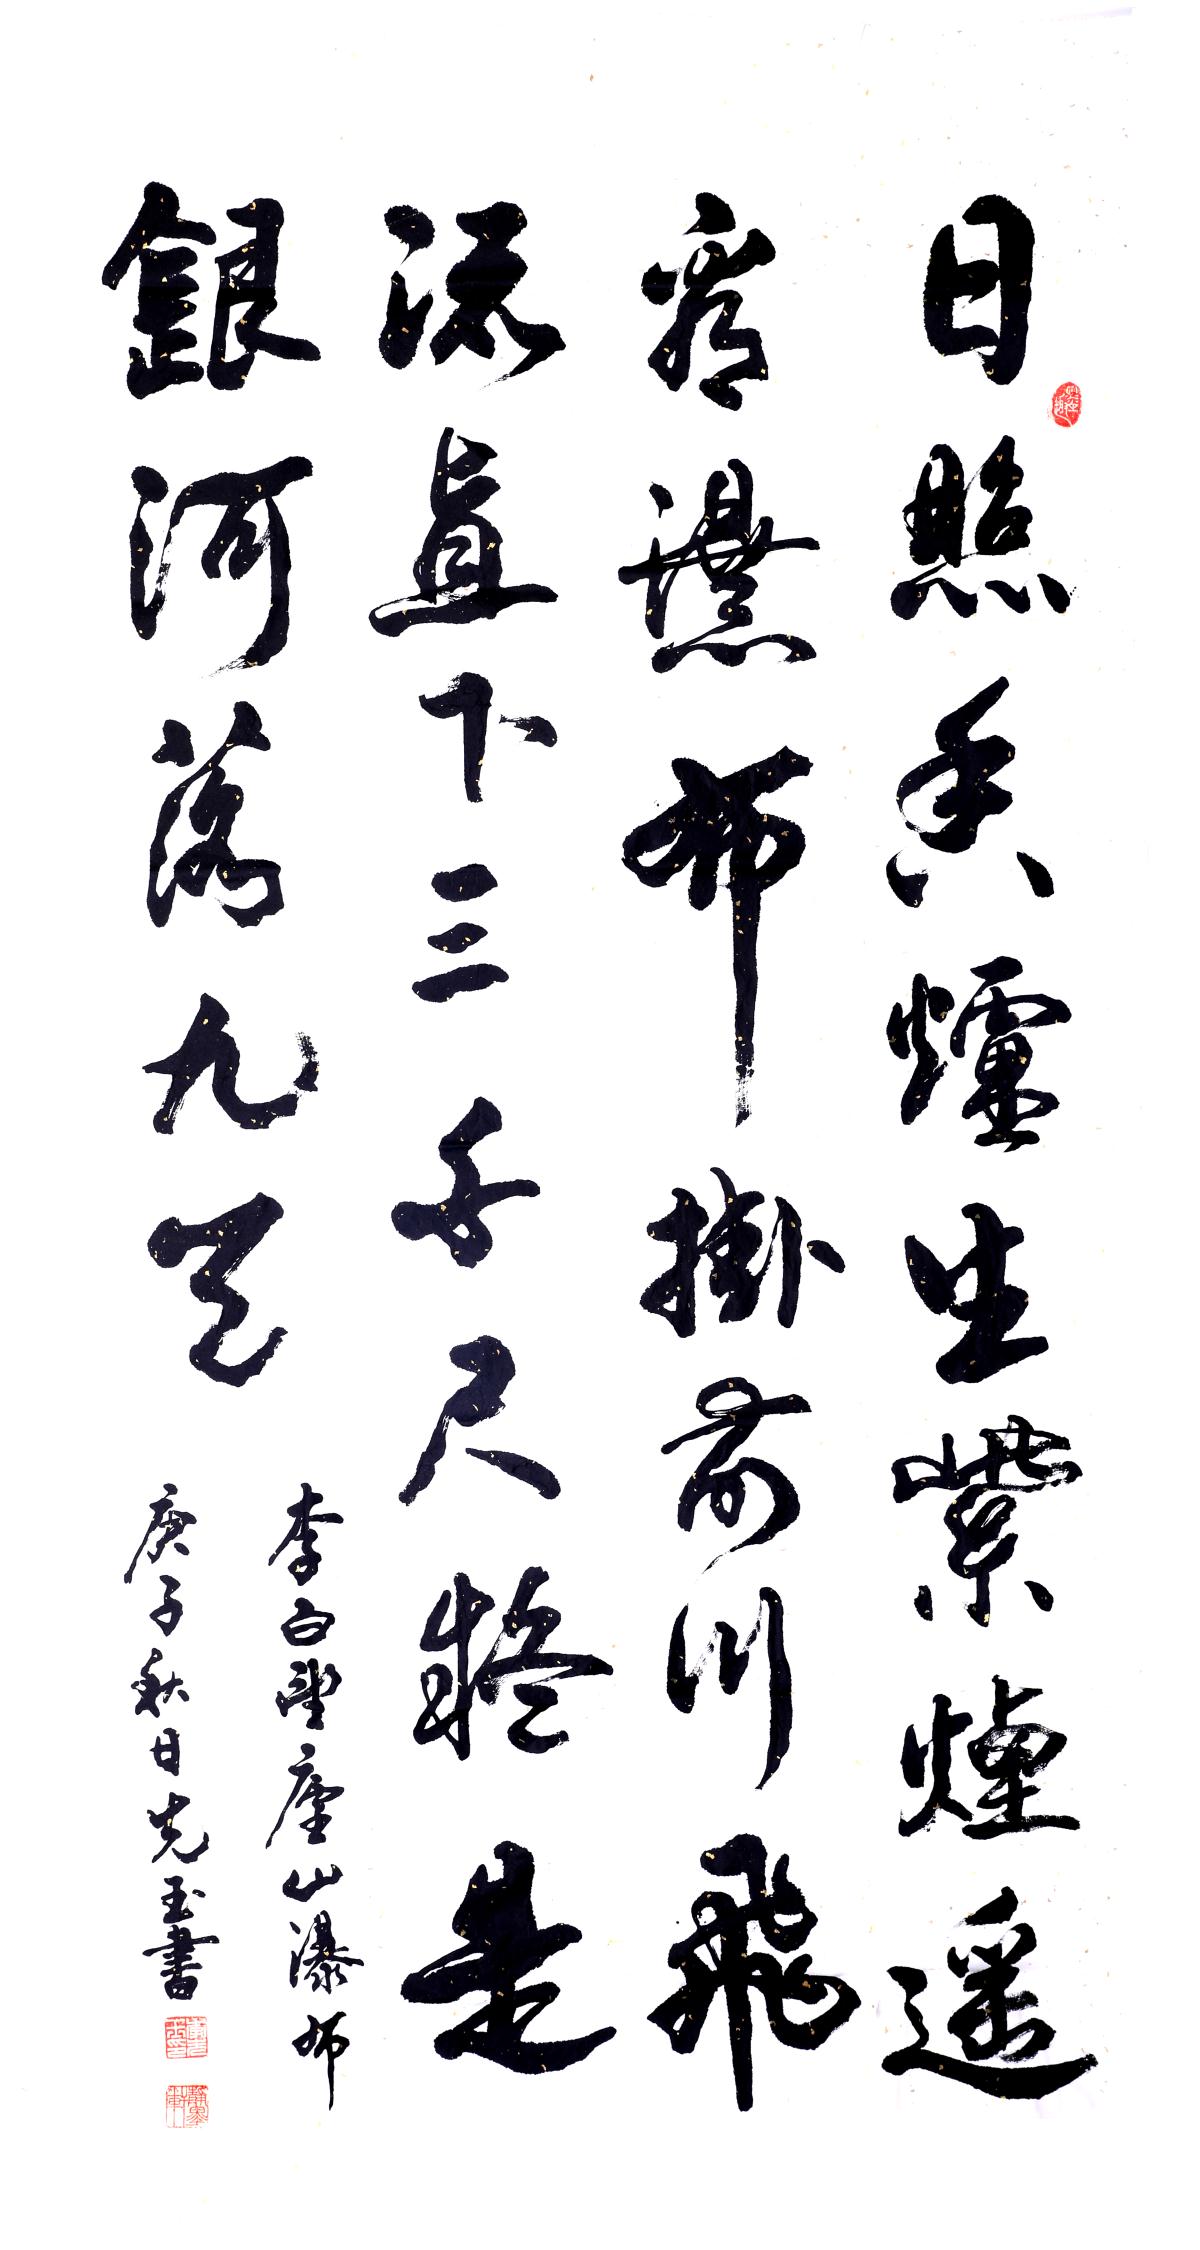 日照香爐生紫煙遥
看瀑布掛前川飛
流直下三千尺疑是
銀河落九天
李白望廬山瀑布
庚子秋日先玉書